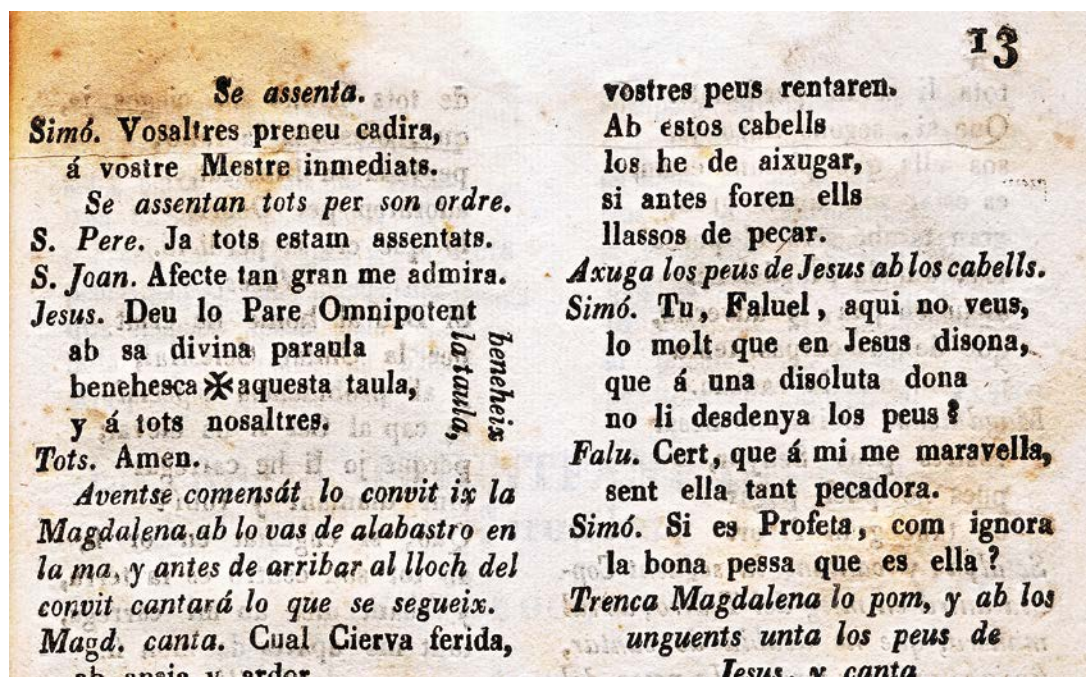 13
Se assenta.
Simó. Vosaltres preneu cadira,
á vostre Mestre inmediats.
Se assentan tots per son ordre.
S. Pere. Ja tots estam assentats.
S. Joan. Afecte tan gran me admira.
Jesus. Deu lo Pare Omnipotent
ab sa divina paraula
benehesca ✠ aquesta taula,
y á tots nosaltres.
beneheix
la taula,
Tots. Amen.
Aventse comensát lo convit ix la
Magdalena ab lo vas de alabastro en
la ma, y antes de arribar al lloch del
convit cantará lo que se segueix.
Magd. canta. Cual Cierva ferida,
ab ansia y ardor
vostres peus rentaren.
Ab estos cabells
los he de aixugar,
si antes foren ells
llassos de pecar.
Axuga los peus de Jesus ab los cabells.
Simó. Tu, Faluel, aqui no veus,
lo molt que en Jesus disona,
que á una disoluta dona
no li desdenya los peus?
Falu. Cert, que á mi me maravella,
sent ella tant pecadora.
Simó. Si es Profeta, com ignora
la bona pessa que es ella?
Trenca Magdalena lo pom, y ab los
unguents unta los peus de
Jesus, y canta